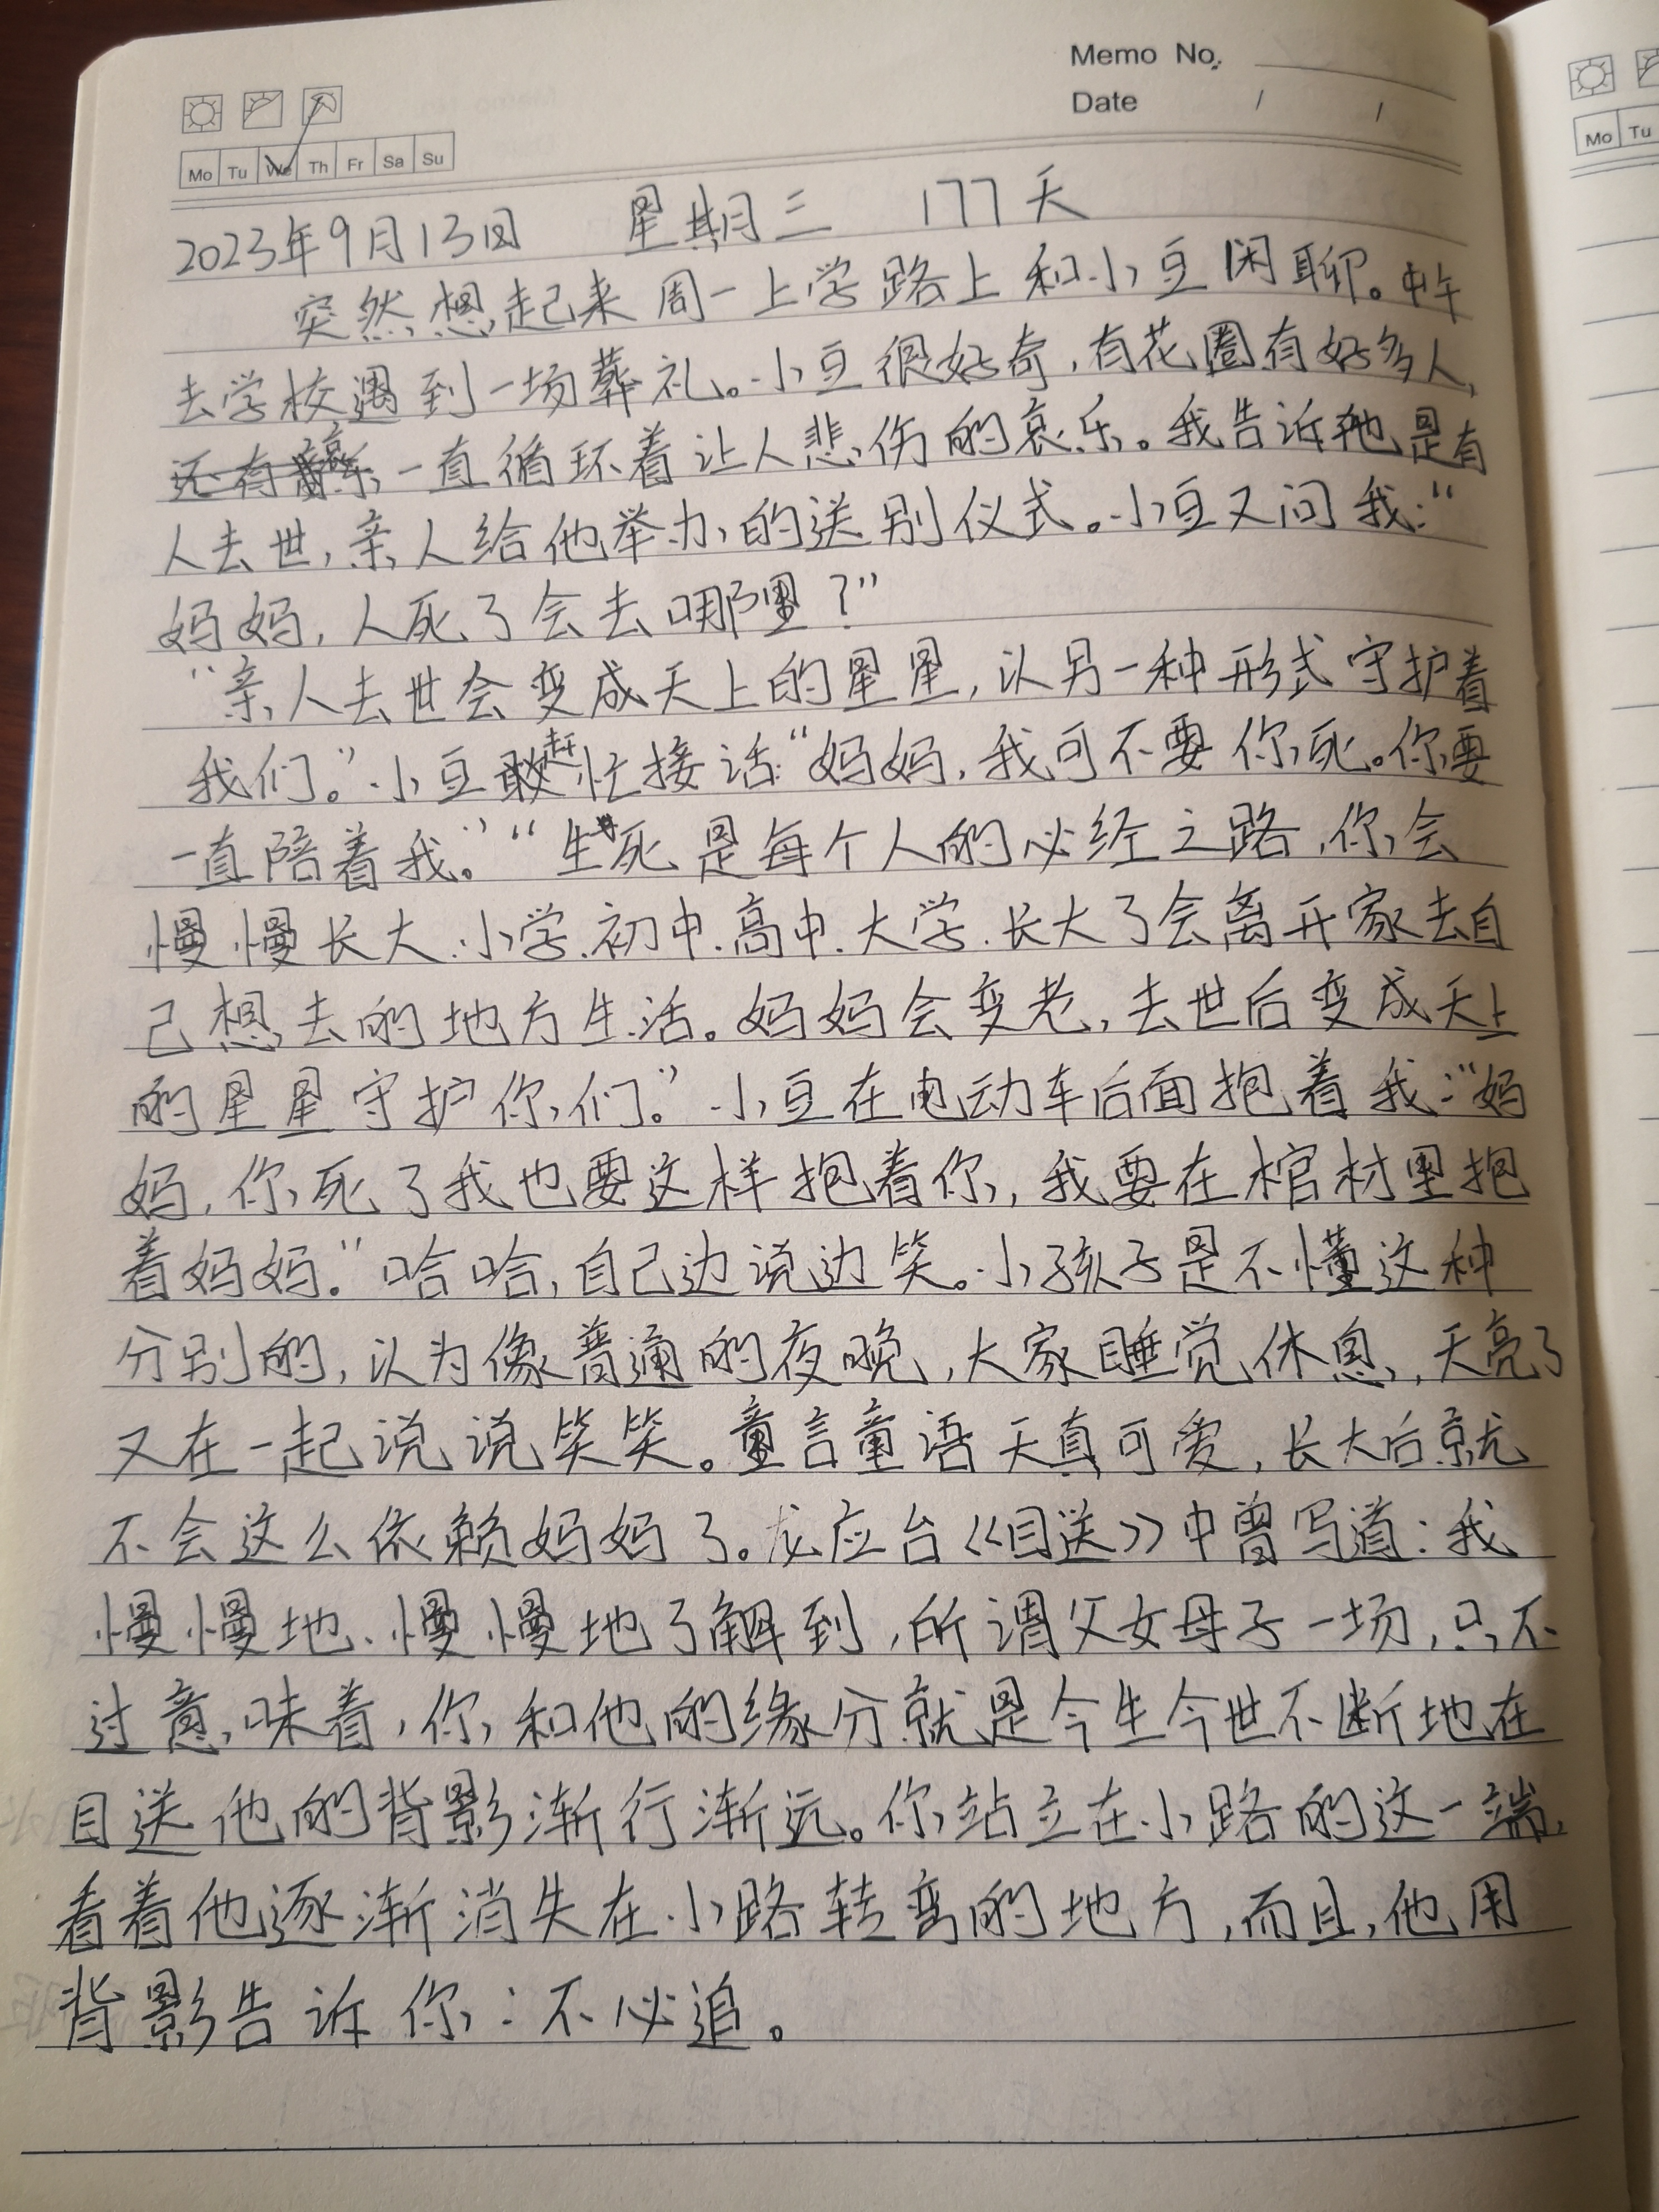 Memo No.
Date / /
Mo Tu We Th Fr Sa Su
Mo Tu
2023年9月13日 星期三 177天
突然想起来周一上学路上和小豆闲聊。中午
去学校遇到一场葬礼。小豆很好奇,有花圈有好多人,
还有 一直循环着让人悲伤的哀乐。我告诉他是有
人去世,亲人给他举办的送别仪式。小豆又问我:“
妈妈,人死了会去哪里?”
“亲人去世会变成天上的星星,以另一种形式守护着
我们。”小豆赶忙接话:“妈妈,我可不要你死。你要
一直陪着我。”“生死是每个人的必经之路,你会
慢慢长大.小学.初中.高中.大学.长大了会离开家去自
己想去的地方生活。妈妈会变老,去世后变成天上
的星星守护你们。”小豆在电动车后面抱着我:“妈
妈,你死了我也要这样抱着你,我要在棺材里抱
着妈妈.”哈哈,自己边说边笑。小孩子是不懂这种
分别的,认为像普通的夜晚,大家睡觉休息,天亮了
又在一起说说笑笑。童言童语天真可爱,长大后就
不会这么依赖妈妈了。龙应台《目送》中曾写道:我
慢慢地、慢慢地了解到,所谓父女母子一场,只不
过意味着,你和他的缘分就是今生今世不断地在
目送他的背影渐行渐远。你站立在小路的这一端,
看着他逐渐消失在小路转弯的地方,而且,他用
背影告诉你:不必追。